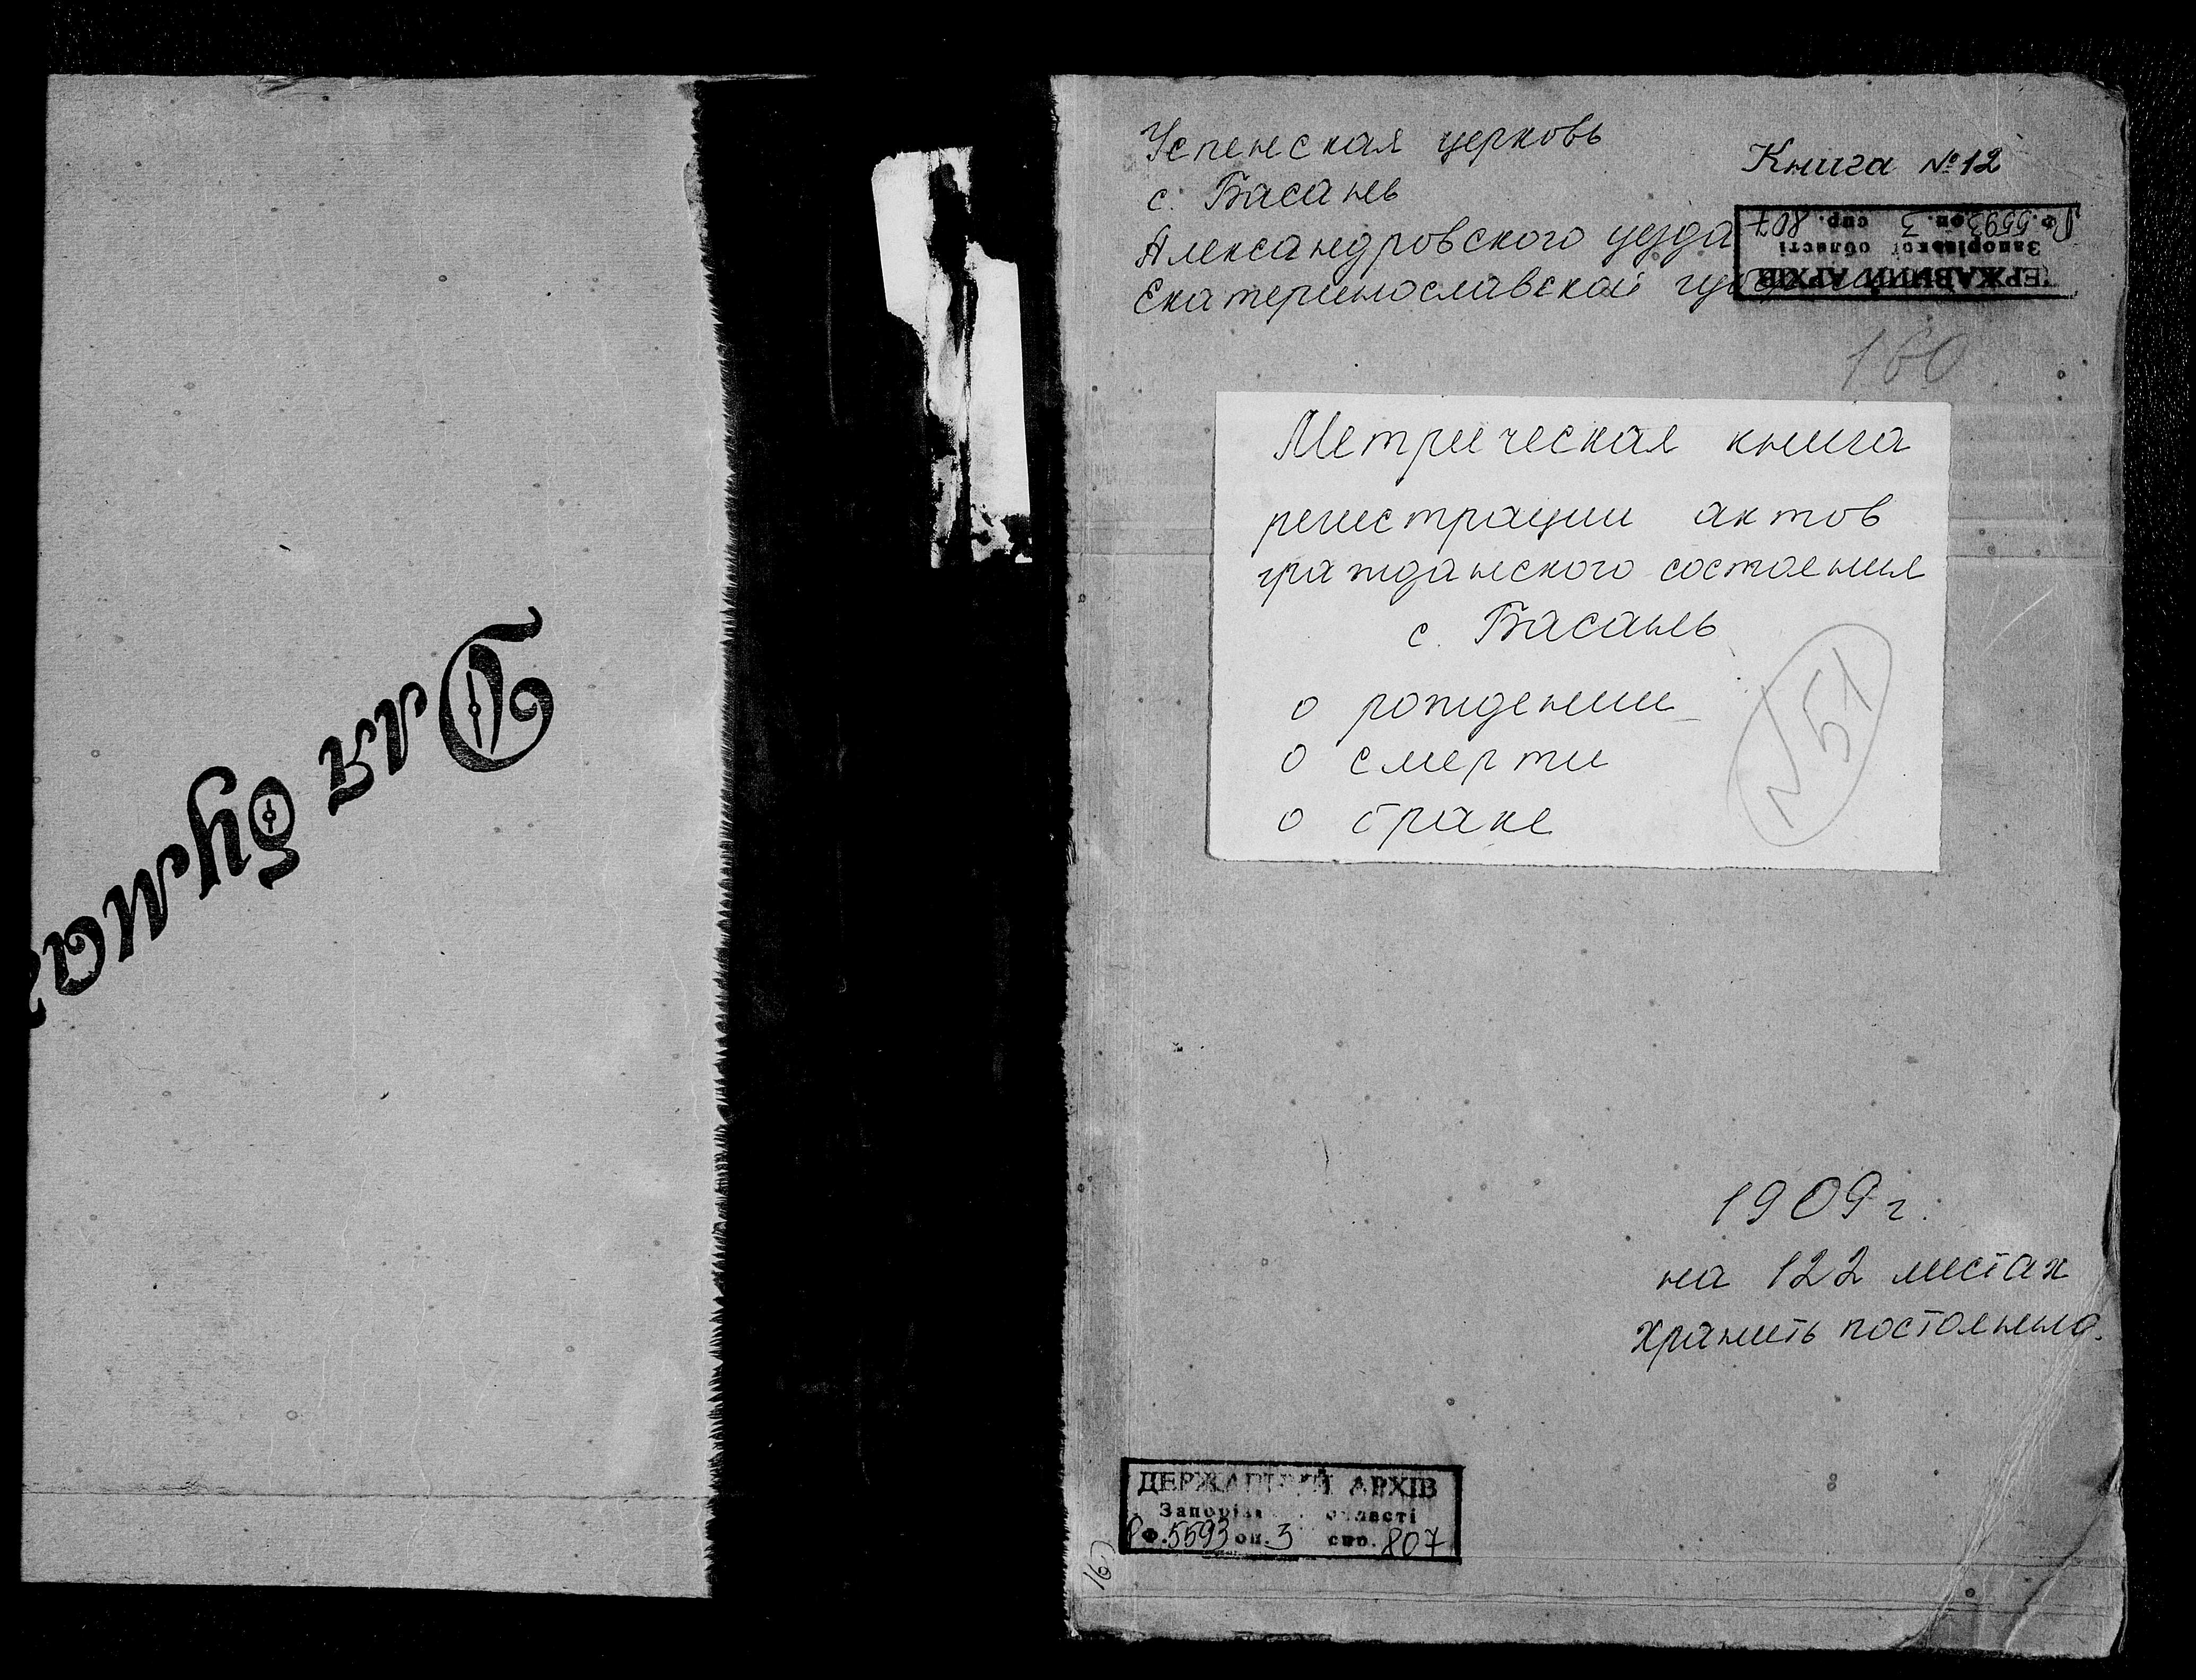 Для бумаг
Успенская церковь
с. Басань
Александровского уезда
Екатеринославской
Книга №12
ДЕРЖАВНИЙ АРХІВ
Запорізької області
Р Ф. 5593 оп. 3 спр. 807
160
Метрическая книга
регистрации актов
гражданского состояния
с. Басань
о рождении
о смерти
о браке
N 51
1909 г.
на 122 листах
Хранить постоянно.
ДЕРЖАВНИЙ АРХІВ
Запорізької області
Р Ф. 5593 оп. 3 спр. 807